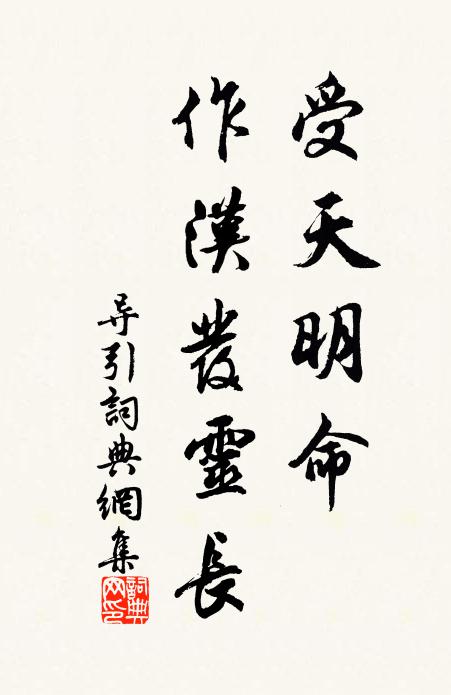 受天明命
作漢發靈長
导引詞典網集
詞典
网印